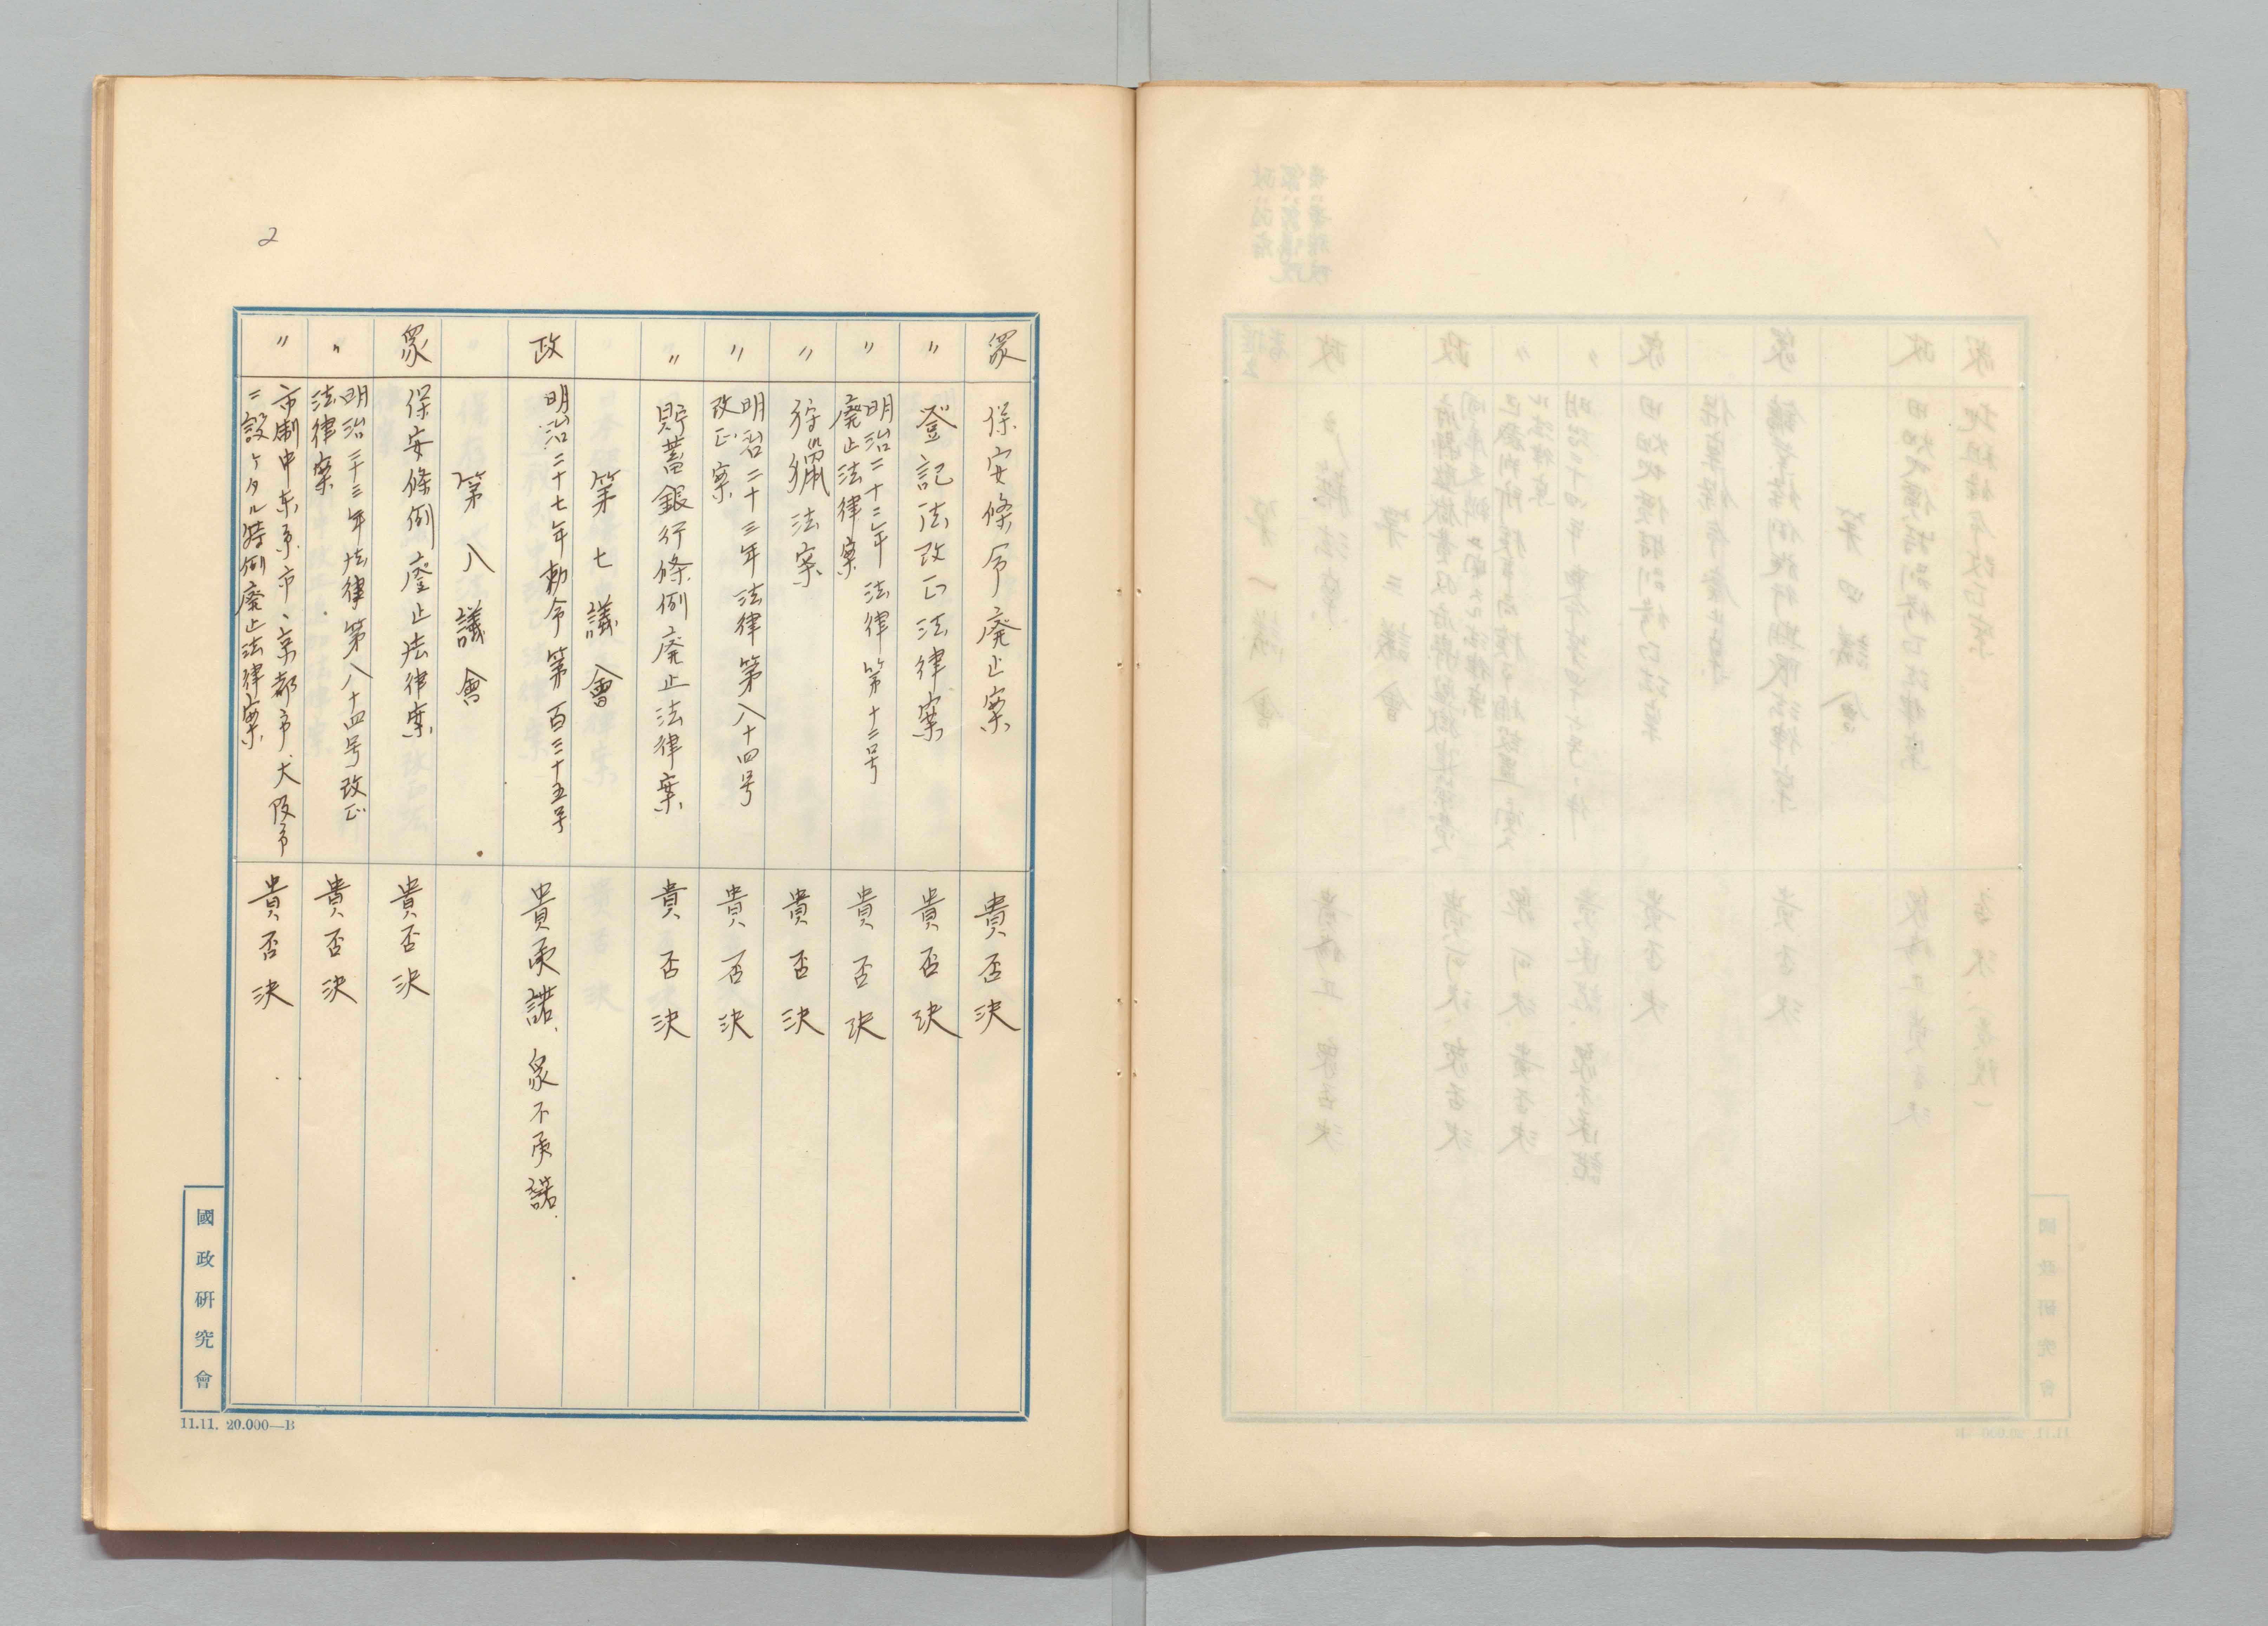 2
衆 保安條令廃止案 貴否決
〃 登記法改正法律案 貴否決
〃 明治二十二年法律第十二号
廃止法律案 貴否決
〃 狩猟法案 貴否決
〃 明治二十三年法律第八十四号
改正案 貴否決
〃 貯蓄銀行條例廃止法律案 貴否決
第七議會
政 明治二十七年勅令第百三十五号 貴承諾、衆不承諾、
第八議會
衆 保安條例廃止法律案 貴否決
〃 明治二十三年法律第八十四号改正
法律案 貴否決
〃 市制中東京市、京都市、大阪市
ニ設ケタル特例廃止法律案 貴否決
國政研究會
11.11. 20.000—B